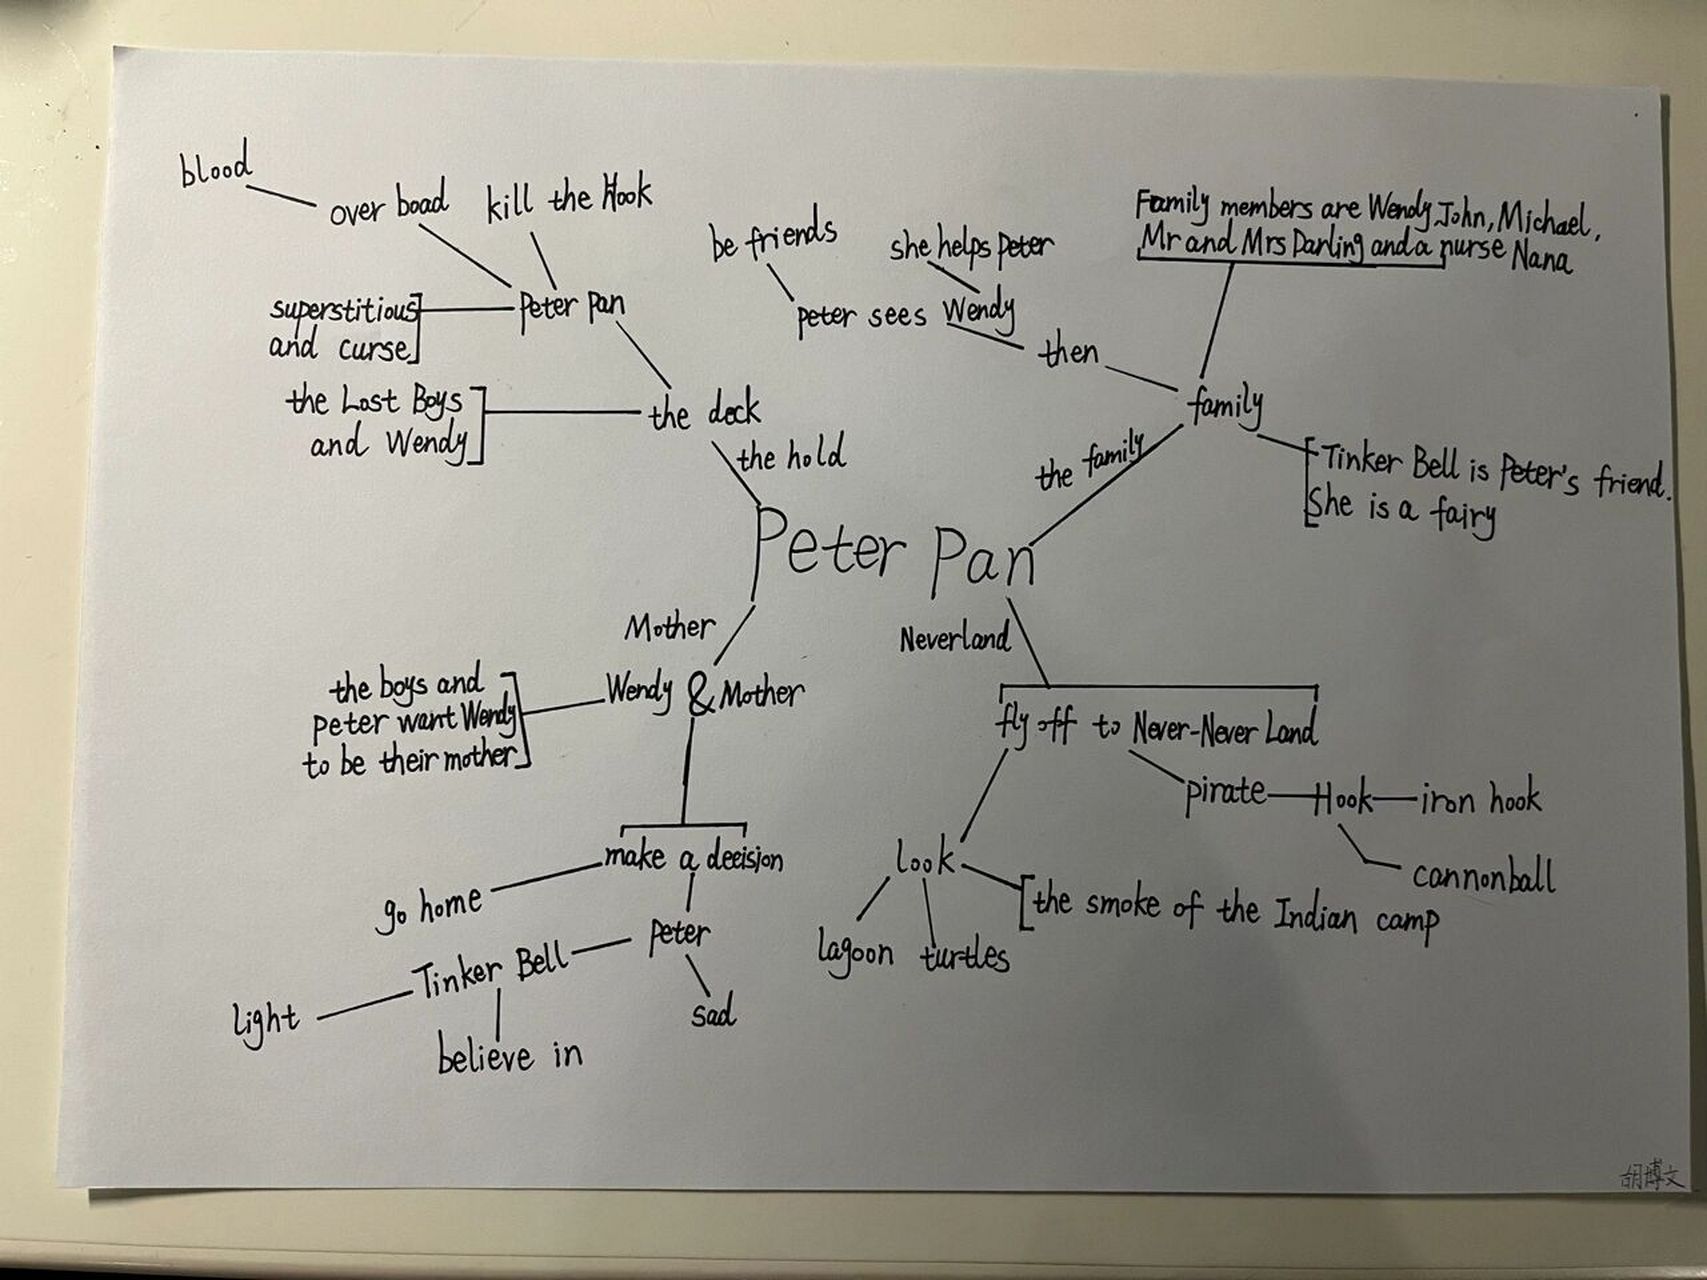 blood
over boad
kill the Hook
superstitious
and curse
Peter Pan
the Lost Boys
and Wendy
the deck
the hold
be friends
she helps Peter
Peter sees Wendy
then
Family members are Wendy, John, Michael,
Mr and Mrs Darling and a nurse Nana
family
the family
Tinker Bell is Peter's friend.
She is a fairy
Peter Pan
Mother
Wendy & Mother
the boys and
Peter want Wendy
to be their mother
make a decision
go home
Peter
Tinker Bell
light
believe in
sad
Neverland
fly off to Never-Never Land
pirate
Hook
iron hook
cannonball
look
the smoke of the Indian camp
lagoon
turtles
胡博文